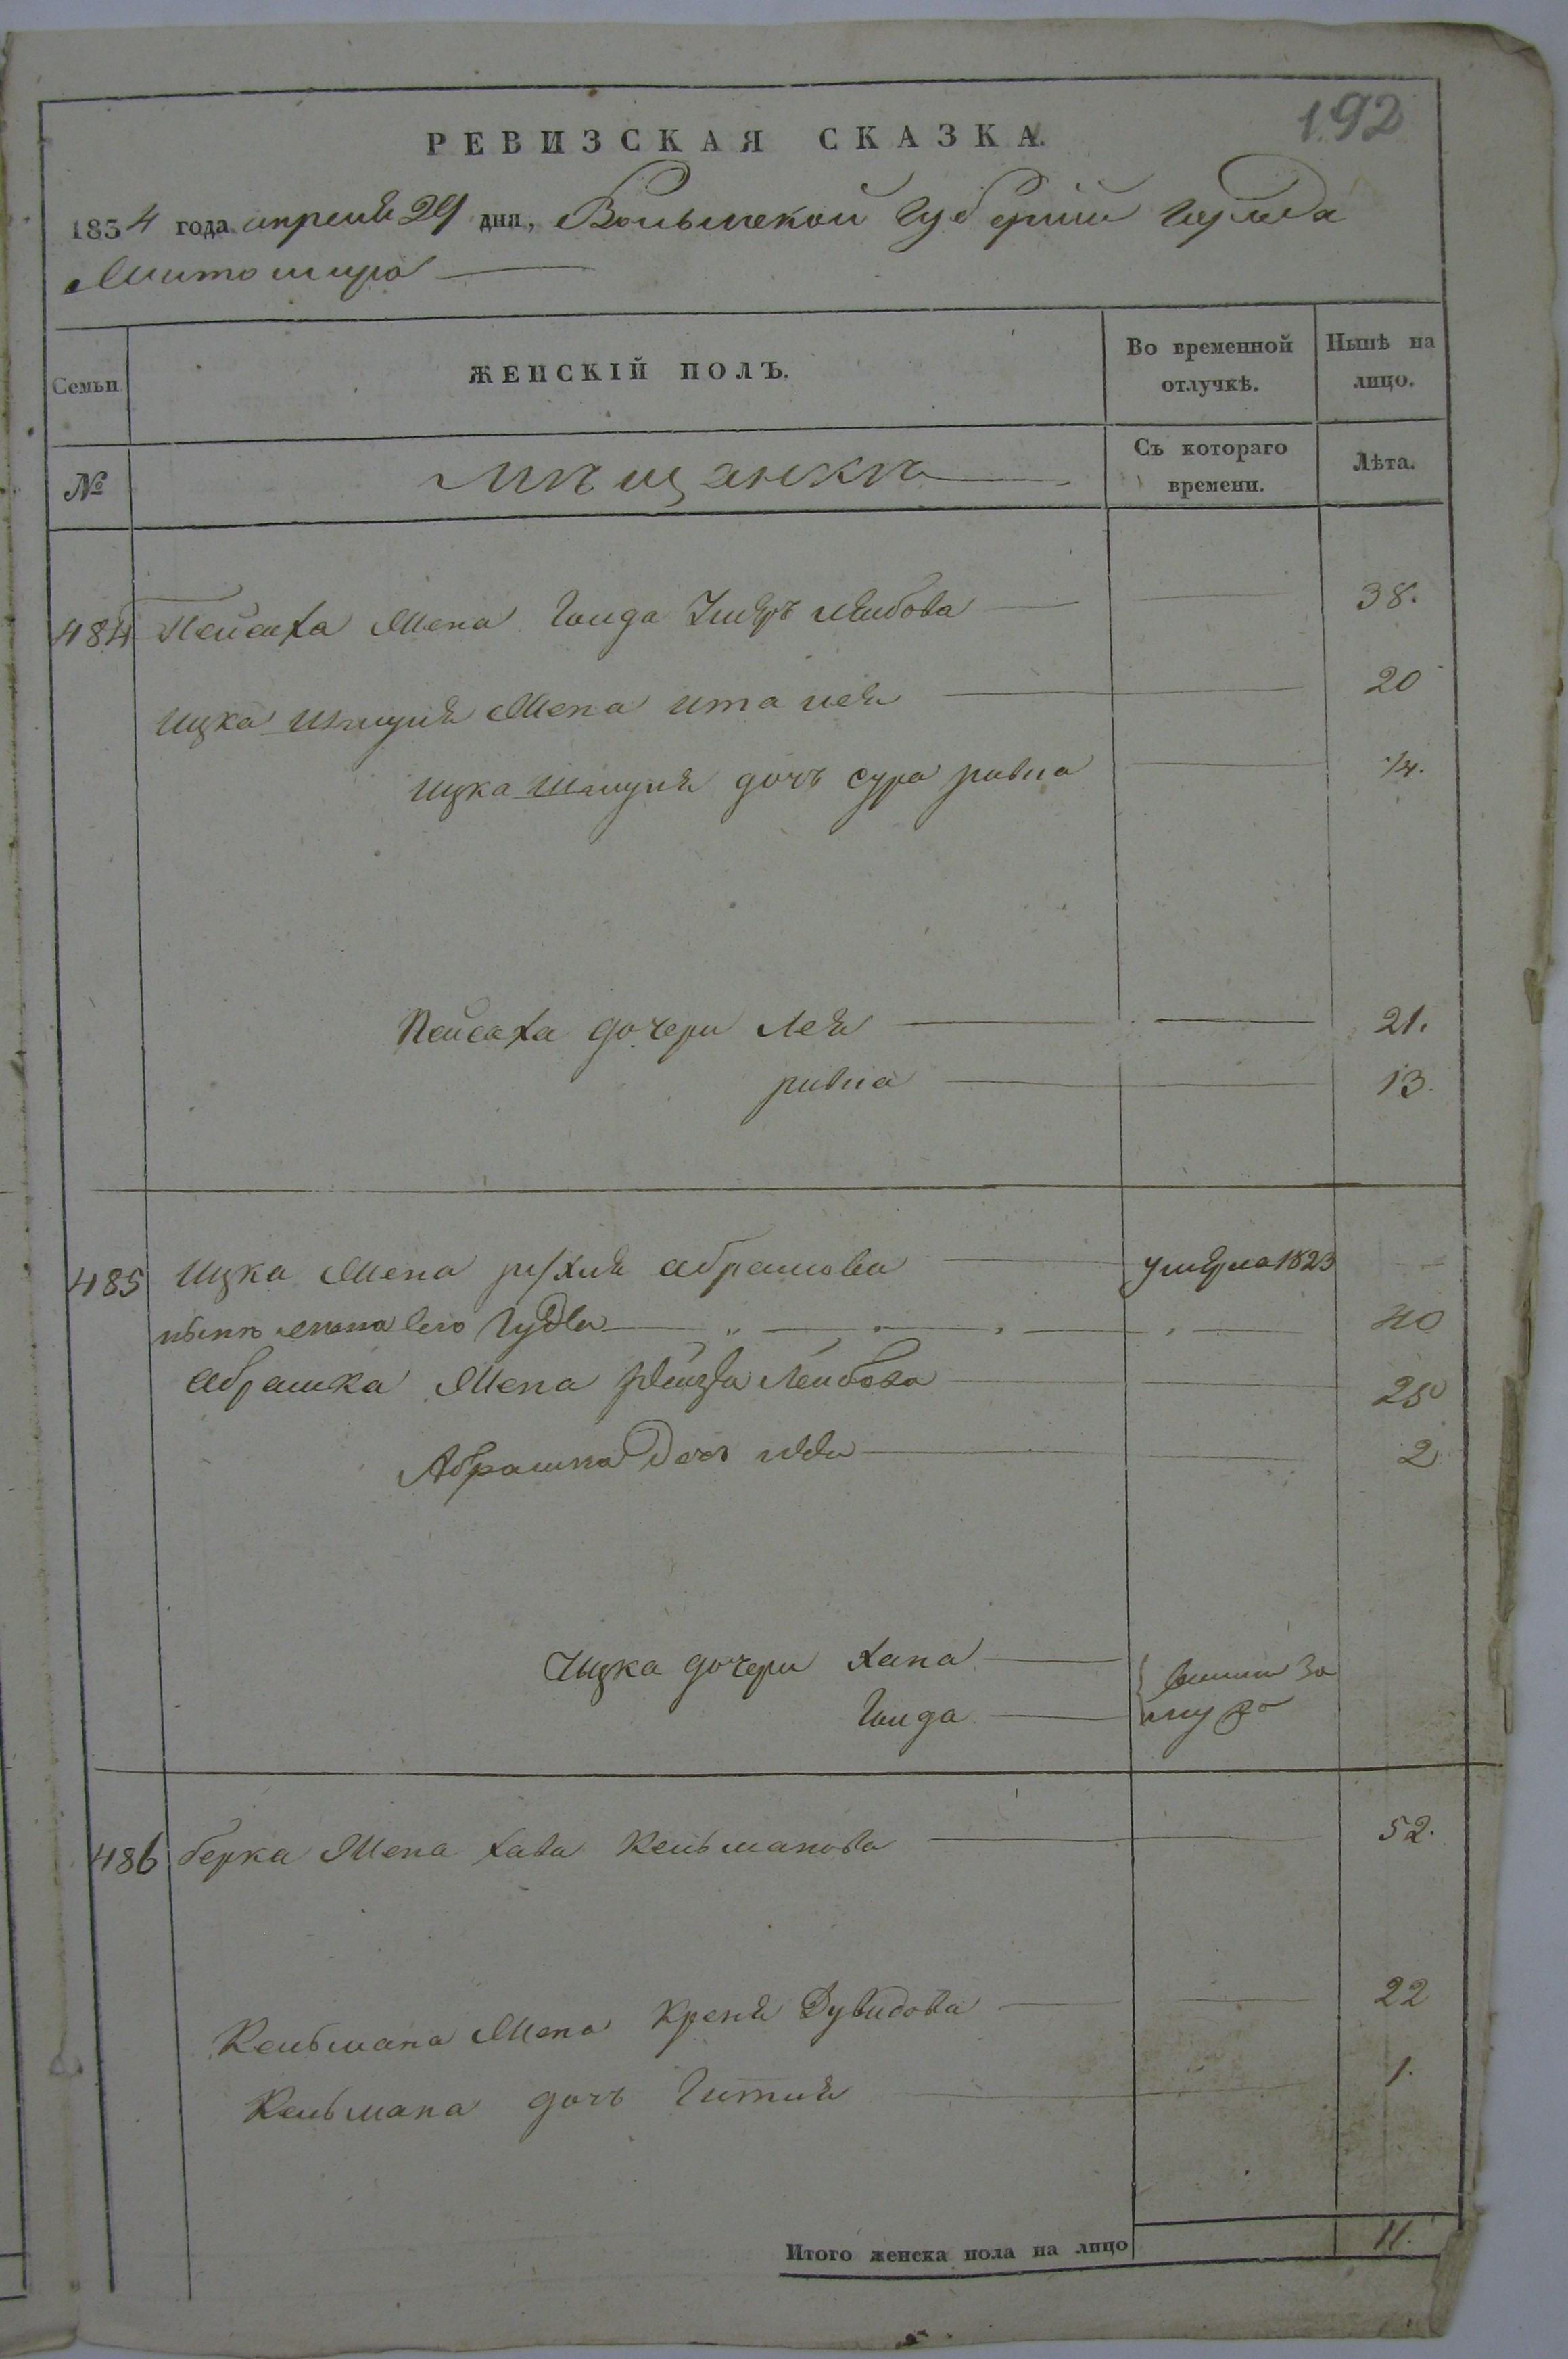 192
РЕВИЗСКАЯ СКАЗКА.
1834 года апреля 29 дня, Волынской Губернии города
Житомира
Семьи
ЖЕНСКІЙ ПОЛЪ.
Во временной отлучкѣ.
Нынѣ на лицо.
№
мѣщанкѣ
Съ котораго времени.
Лѣта.
484 Пейсаха жена Гинда леибова 38.
Ицка Шмуля жена ита лея 20
Ицка Шмуля дочь сура ривка 1/4.
Пейсаха дочери Лея 21.
ривка 13.
485 Ицка жена рухля абрамова умерла 1823
нынѣ жена его Гудя 40
абрашка жена Рейзя Лейбова 25
Абрашка дочь 2
Ицка дочери хана } вышли за
Гинда мужо
486 берка жена хава Кельманова 52.
Кельмана жена Креня Дувидова 22
Кельмана дочь Гитля 1.
Итого женска пола на лицо 11.